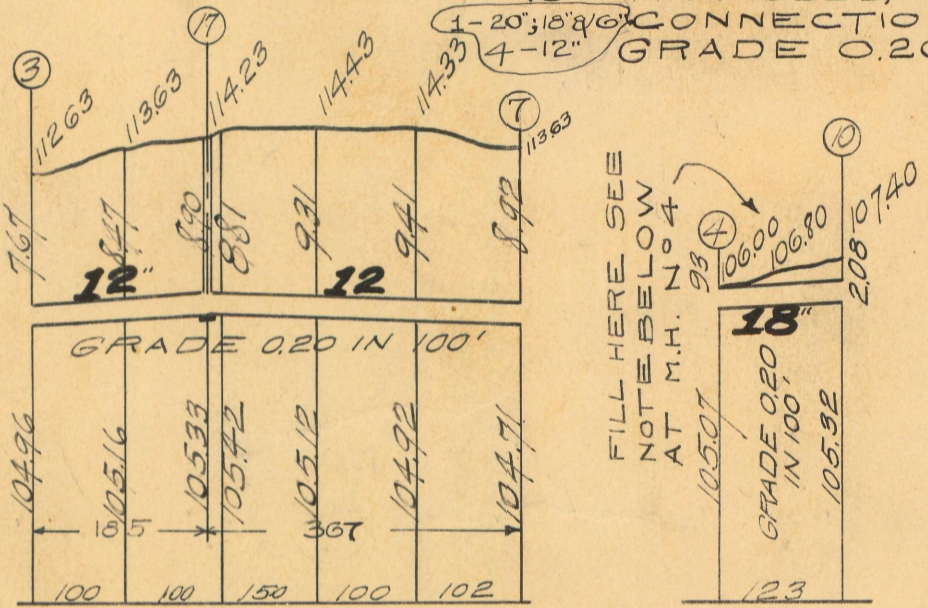 1-20"; 18"&16" CONNECTIO
4-12" GRADE 0.20
3
17
7
112.63
113.63
114.23
114.43
114.33
113.63
7.67
8.47
8.90
8.81
9.31
9.41
8.92
12"
12
GRADE 0.20 IN 100'
104.96
105.16
105.33
105.42
105.12
104.92
104.71
185
367
100
100
150
100
102
FILL HERE SEE
NOTE BELOW
AT M.H. Nº 4
4
10
106.00
106.80
107.40
93
2.08
18"
105.07
GRADE 0.20
IN 100'
105.32
123